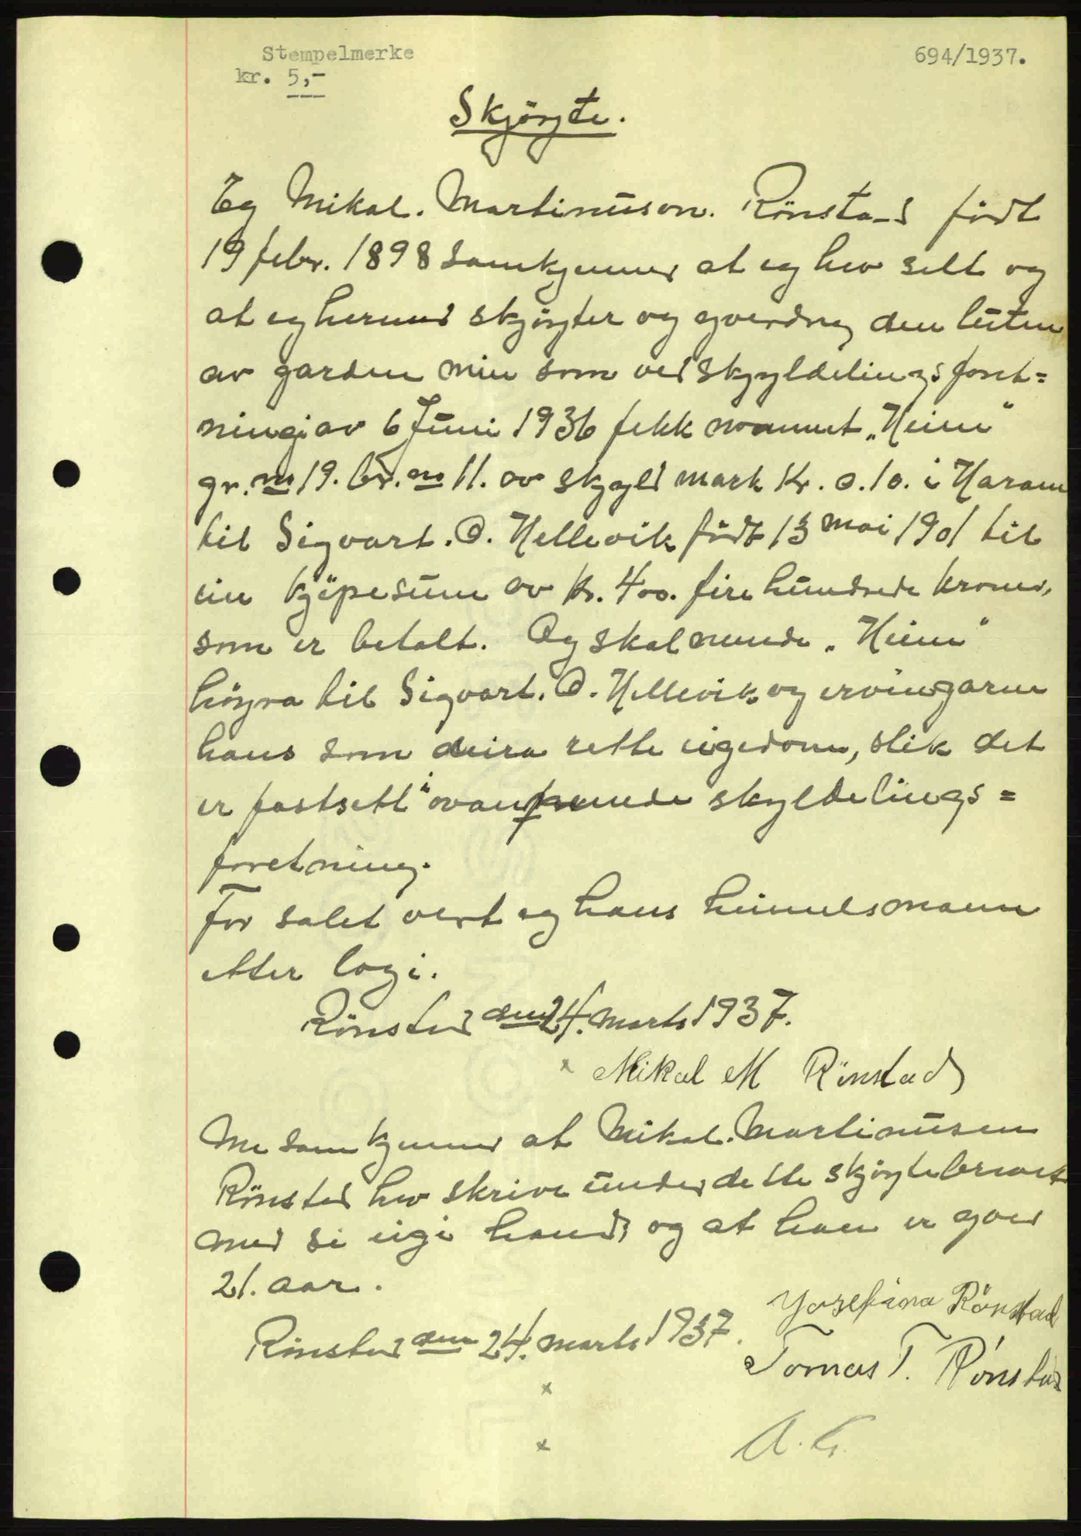 Stempelmerke
kr. 5,-
694/1937.
Skjöyte.
Eg Mikal. Martinuson. Rönstad födt
19 febr. 1898 samkjenner at eg hev selt og
at eg hermed skjöyter og yverdreg den luten
av garden min som ved skyldelingsforet=
ningi av 6 Juni 1936 fekk namnet „Heim"
gr. no 19. br. no 11. av skyld mark Kr. 0.10. i Haram
til Sigvart. O. Hellevik födt 13 mai 1901 til
ein kjöpesum av Kr. 400. fire hundrede kroner,
som er betalt. Og skal nemnde „Heim"
höyra til Sigvart. O. Hellevik og ervingarne
hans som deira rette eigedom, slik det
er fastsett i ovannemnde skyldelings=
foretning.
For salet vert eg hans heimelsmann
etter logi.
Rönstad den 24. marts 1937.
x Mikal M Rönstad
Me samkjenner at Mikal. Martinusen
Rönstad hev skrive under dette skjöytebrevet
med si eigi hand, og at han er yver
21. aar.
Rönstad den 24. marts 1937.
Josefina Rönstad
Tomas T. Rönstad
x
x